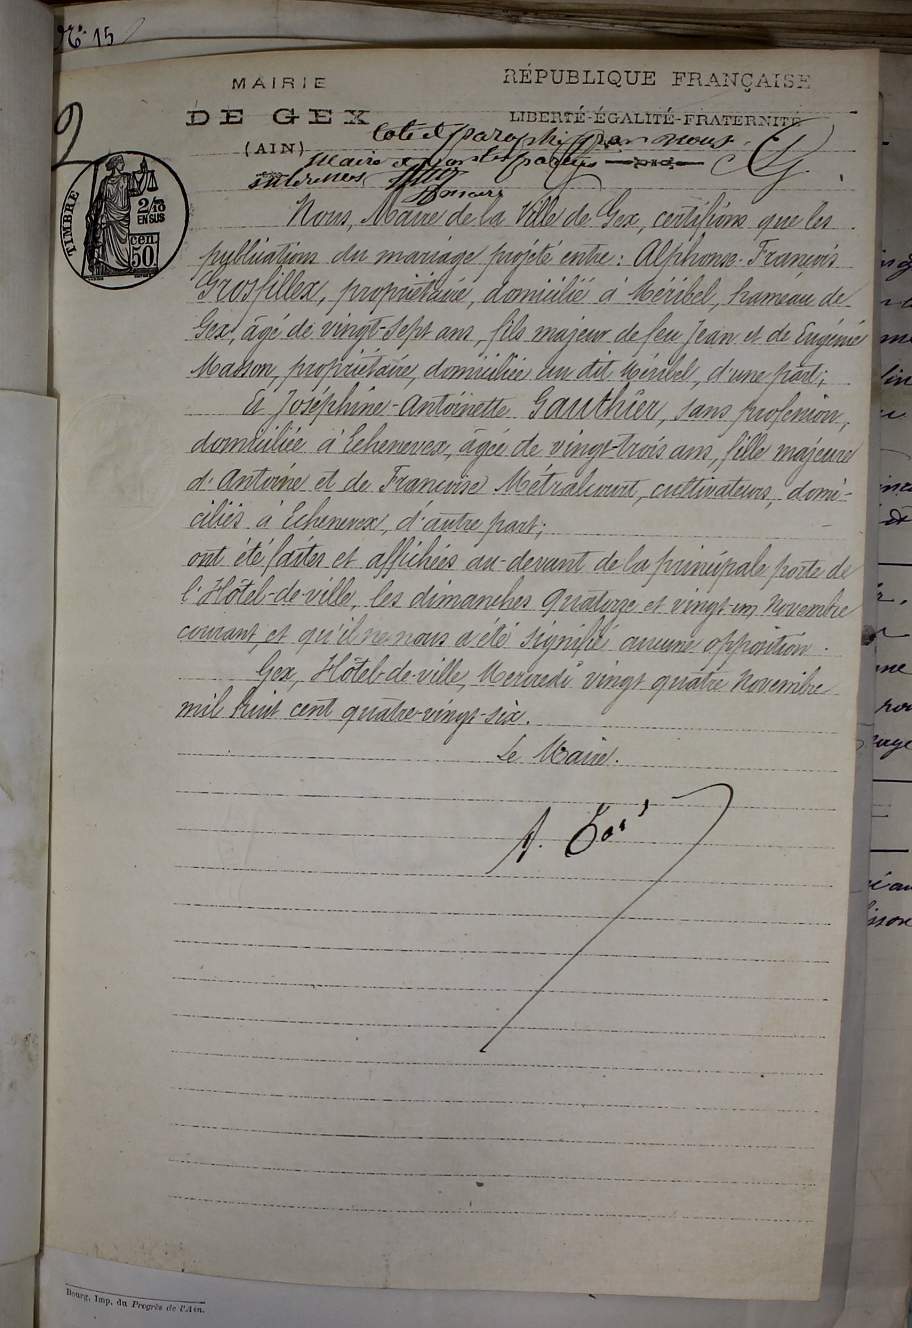 N° 15
MAIRIE
DE GEX
(AIN)
RÉPUBLIQUE FRANÇAISE
LIBERTÉ-ÉGALITÉ-FRATERNITÉ
2
Coté & paraphé par nous
Maire et parties
TIMBRE
2/10
EN SUS
cen
50
Nous, Maire de la Ville de Gex, certifions que les
publications du mariage projeté entre: Alphonse-François
Grosfillex, propriétaire, domicilié à Méribel, hameau de
Gex, âgé de vingt-sept ans, fils majeur de feu Jean et de Eugénie
Masson, propriétaire, domiciliée au dit Méribel, d'une part;
Et Joséphine-Antoinette Gauthier, sans profession,
domiciliée à Echenevex, âgée de vingt-trois ans, fille majeure
d'Antoine et de Françoise Métralcourt, cultivateurs, domi-
ciliés à Echenevex, d'autre part;
ont été faites et affichées au-devant de la principale porte de
l'Hôtel-de-ville, les dimanches quatorze et vingt-un Novembre
courant, et qu'il ne nous a été signifié aucune opposition.
Gex, Hôtel-de-ville, Mercredi vingt quatre Novembre
mil huit cent quatre-vingt-six.
Le Maire.
Bourg, Imp. du Progrès de l'Ain.